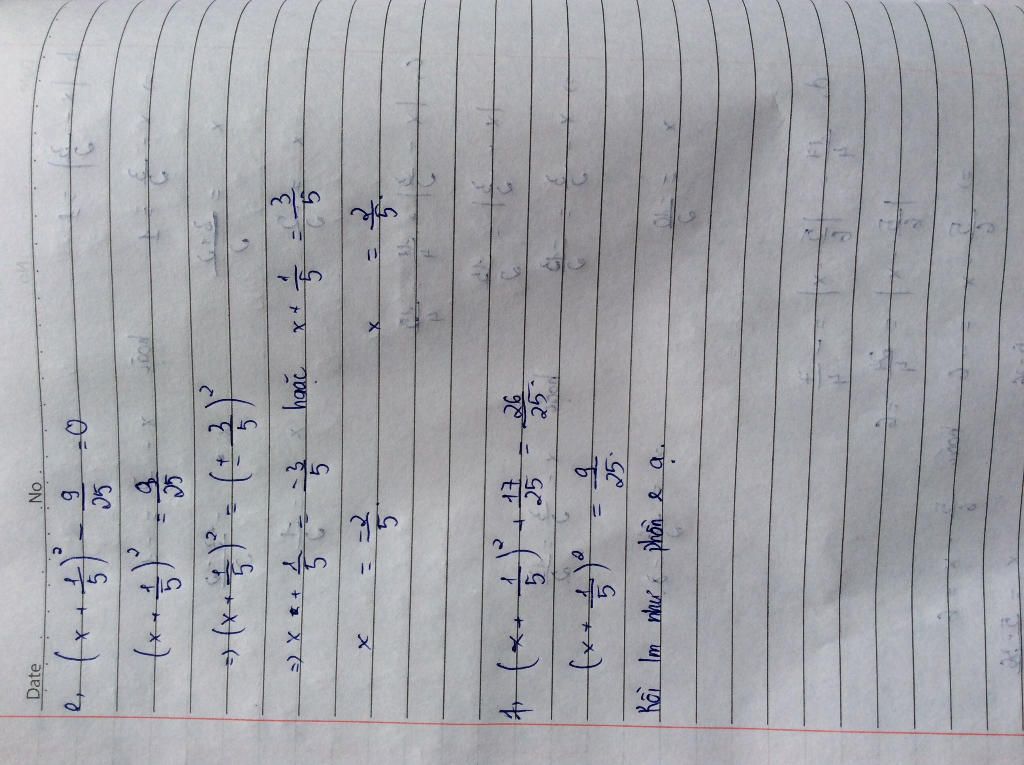 Date No.
e, (x + 1/5)² - 9/25 = 0
(x + 1/5)² = 9/25
=> (x + 1/5)² = (± 3/5)²
=> x + 1/5 = -3/5 hoặc x + 1/5 = 3/5
x = -2/5 x = 2/5
f, (x + 1/5)² + 17/25 = 26/25
(x + 1/5)² = 9/25
Rồi lm như phần e ạ.